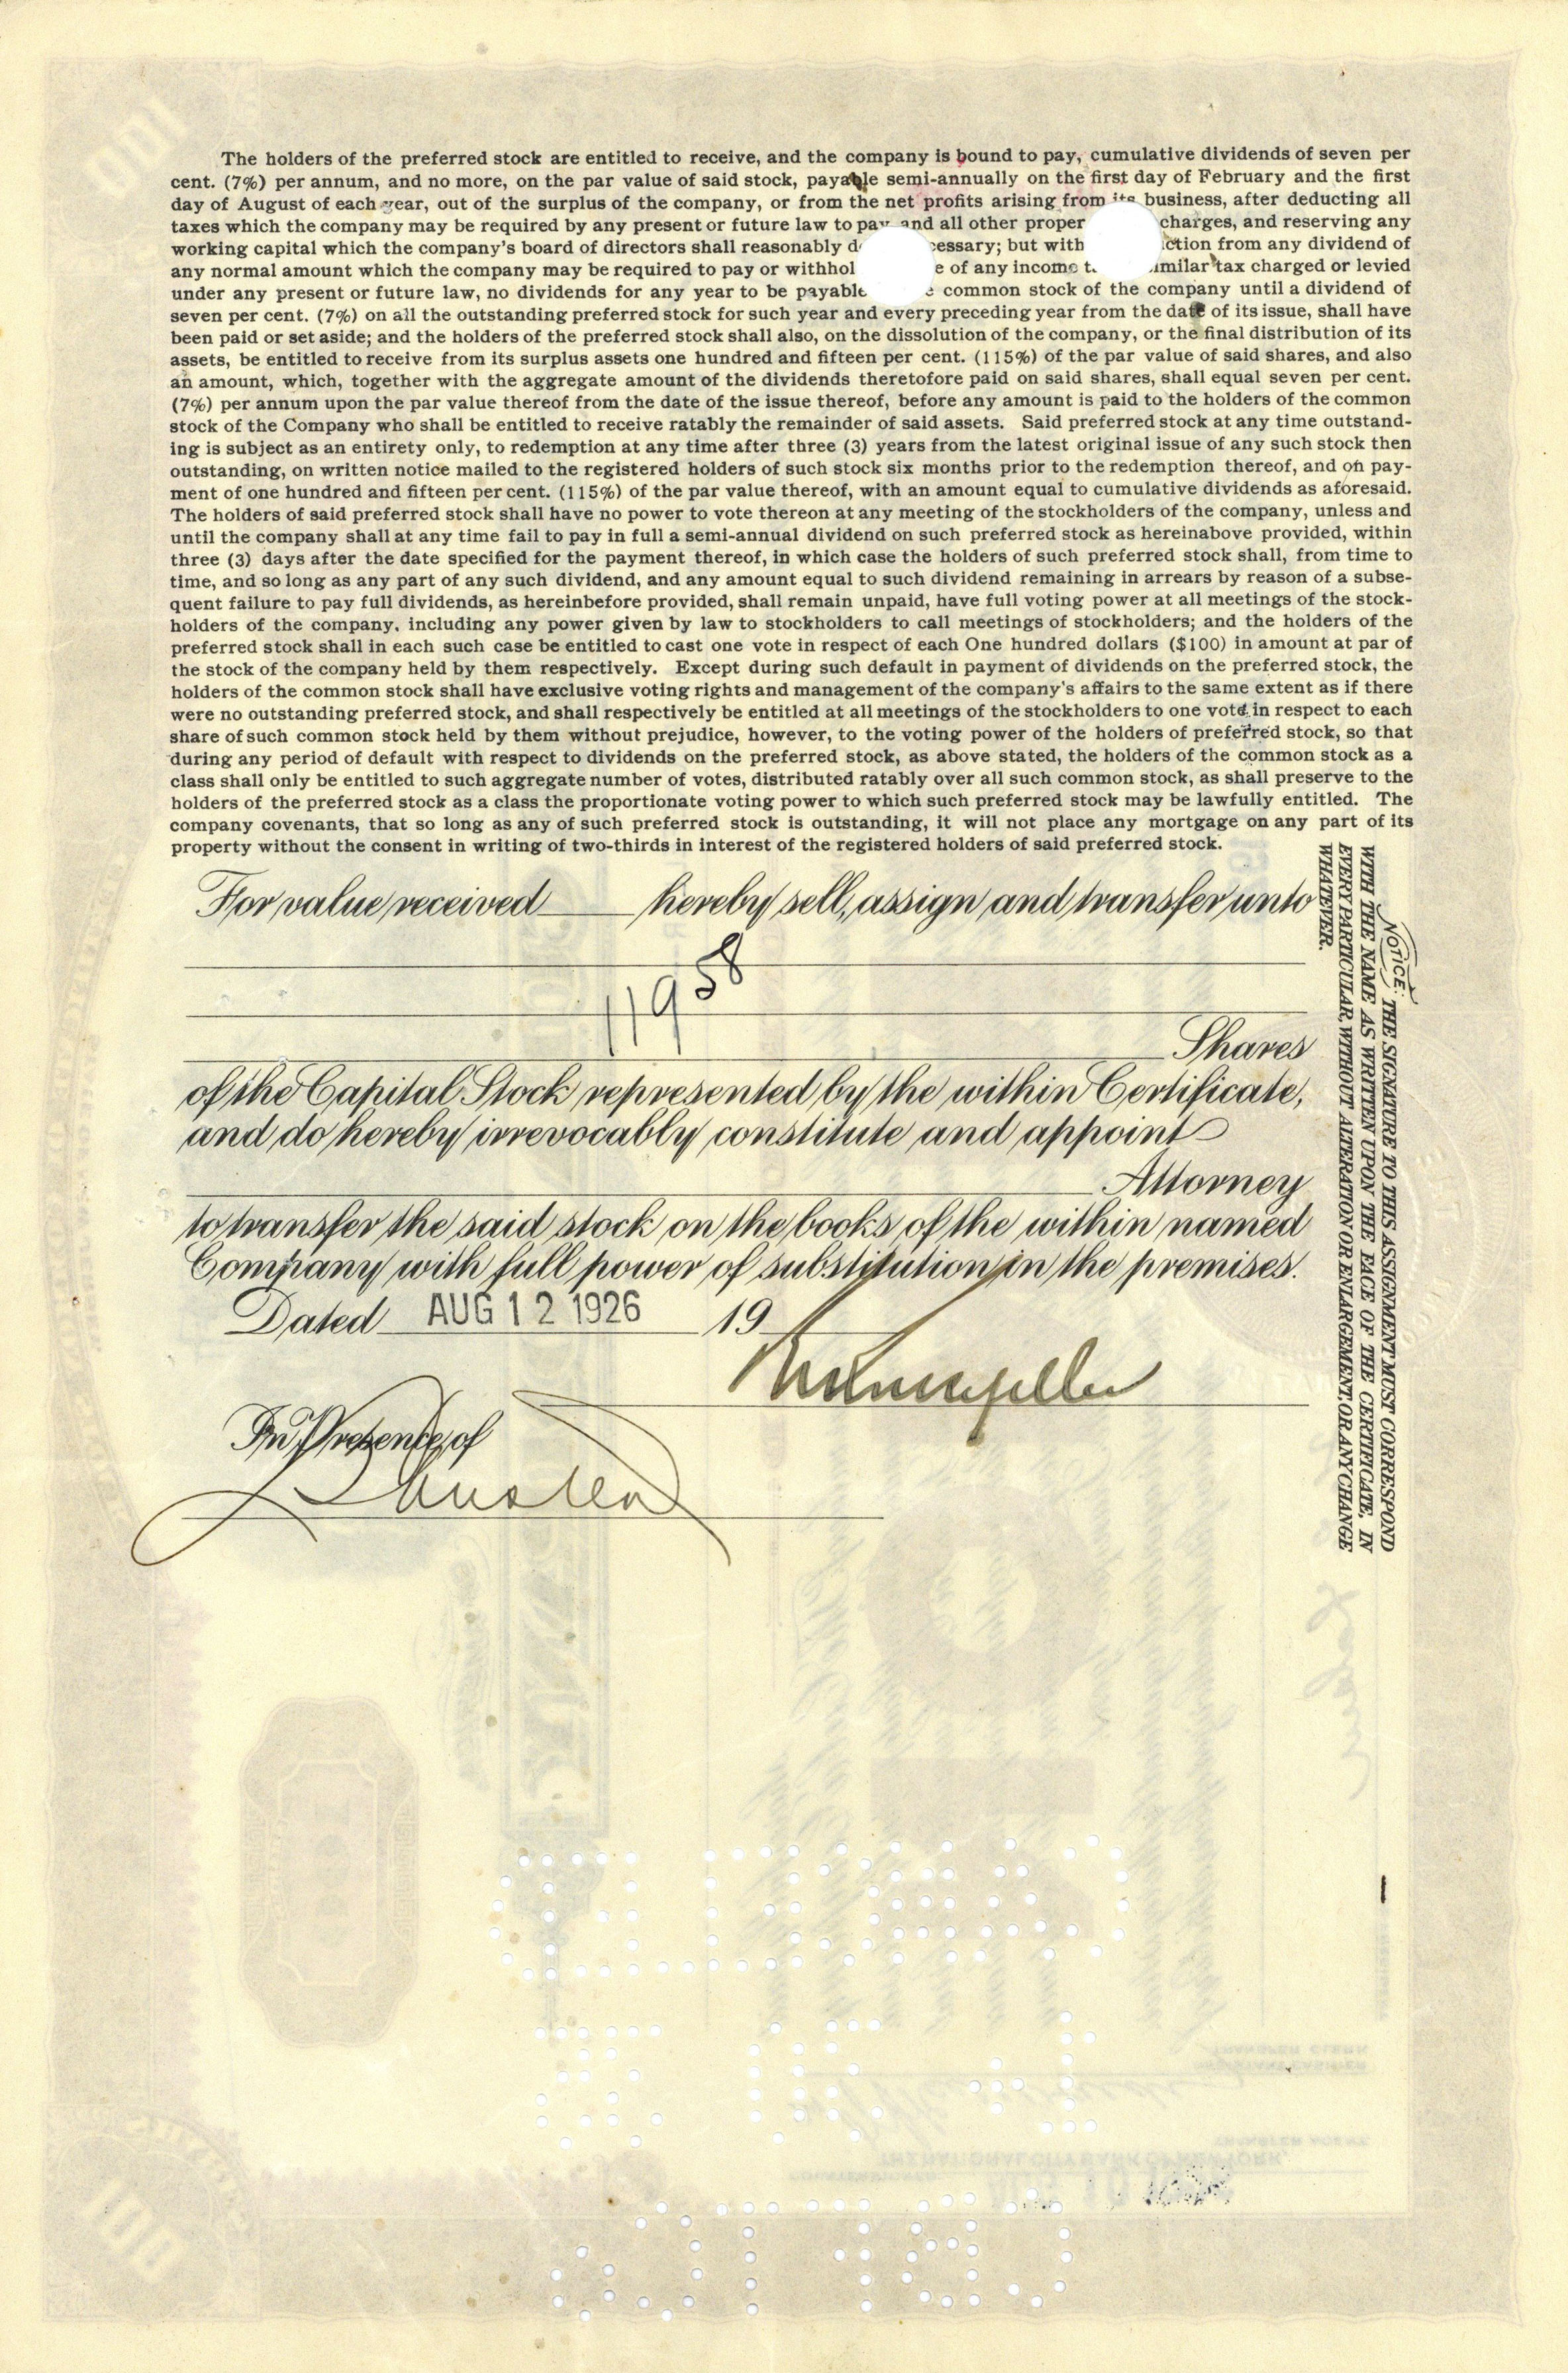 The holders of the preferred stock are entitled to receive, and the company is bound to pay, cumulative dividends of seven per
cent. (7%) per annum, and no more, on the par value of said stock, payable semi-annually on the first day of February and the first
day of August of each year, out of the surplus of the company, or from the net profits arising from its business, after deducting all
taxes which the company may be required by any present or future law to pay and all other proper charges, and reserving any
working capital which the company's board of directors shall reasonably cessary; but with ction from any dividend of
any normal amount which the company may be required to pay or withhol e of any income milar tax charged or levied
under any present or future law, no dividends for any year to be payable common stock of the company until a dividend of
seven per cent. (7%) on all the outstanding preferred stock for such year and every preceding year from the date of its issue, shall have
been paid or set aside; and the holders of the preferred stock shall also, on the dissolution of the company, or the final distribution of its
assets, be entitled to receive from its surplus assets one hundred and fifteen per cent. (115%) of the par value of said shares, and also
an amount, which, together with the aggregate amount of the dividends theretofore paid on said shares, shall equal seven per cent.
(7%) per annum upon the par value thereof from the date of the issue thereof, before any amount is paid to the holders of the common
stock of the Company who shall be entitled to receive ratably the remainder of said assets. Said preferred stock at any time outstand-
ing is subject as an entirety only, to redemption at any time after three (3) years from the latest original issue of any such stock then
outstanding, on written notice mailed to the registered holders of such stock six months prior to the redemption thereof, and on pay-
ment of one hundred and fifteen per cent. (115%) of the par value thereof, with an amount equal to cumulative dividends as aforesaid.
The holders of said preferred stock shall have no power to vote thereon at any meeting of the stockholders of the company, unless and
until the company shall at any time fail to pay in full a semi-annual dividend on such preferred stock as hereinabove provided, within
three (3) days after the date specified for the payment thereof, in which case the holders of such preferred stock shall, from time to
time, and so long as any part of any such dividend, and any amount equal to such dividend remaining in arrears by reason of a subse-
quent failure to pay full dividends, as hereinbefore provided, shall remain unpaid, have full voting power at all meetings of the stock-
holders of the company, including any power given by law to stockholders to call meetings of stockholders; and the holders of the
preferred stock shall in each such case be entitled to cast one vote in respect of each One hundred dollars ($100) in amount at par of
the stock of the company held by them respectively. Except during such default in payment of dividends on the preferred stock, the
holders of the common stock shall have exclusive voting rights and management of the company's affairs to the same extent as if there
were no outstanding preferred stock, and shall respectively be entitled at all meetings of the stockholders to one vote in respect to each
share of such common stock held by them without prejudice, however, to the voting power of the holders of preferred stock, so that
during any period of default with respect to dividends on the preferred stock, as above stated, the holders of the common stock as a
class shall only be entitled to such aggregate number of votes, distributed ratably over all such common stock, as shall preserve to the
holders of the preferred stock as a class the proportionate voting power to which such preferred stock may be lawfully entitled. The
company covenants, that so long as any of such preferred stock is outstanding, it will not place any mortgage on any part of its
property without the consent in writing of two-thirds in interest of the registered holders of said preferred stock.
For value received hereby sell, assign and transfer unto
11958
Shares
of the Capital Stock represented by the within Certificate,
and do hereby irrevocably constitute and appoint
Attorney
to transfer the said stock on the books of the within named
Company with full power of substitution in the premises.
Dated AUG 12 1926 19
In Presence of
NOTICE: THE SIGNATURE TO THIS ASSIGNMENT MUST CORRESPOND
WITH THE NAME AS WRITTEN UPON THE FACE OF THE CERTIFICATE, IN
EVERY PARTICULAR, WITHOUT ALTERATION OR ENLARGEMENT, OR ANY CHANGE
WHATEVER.